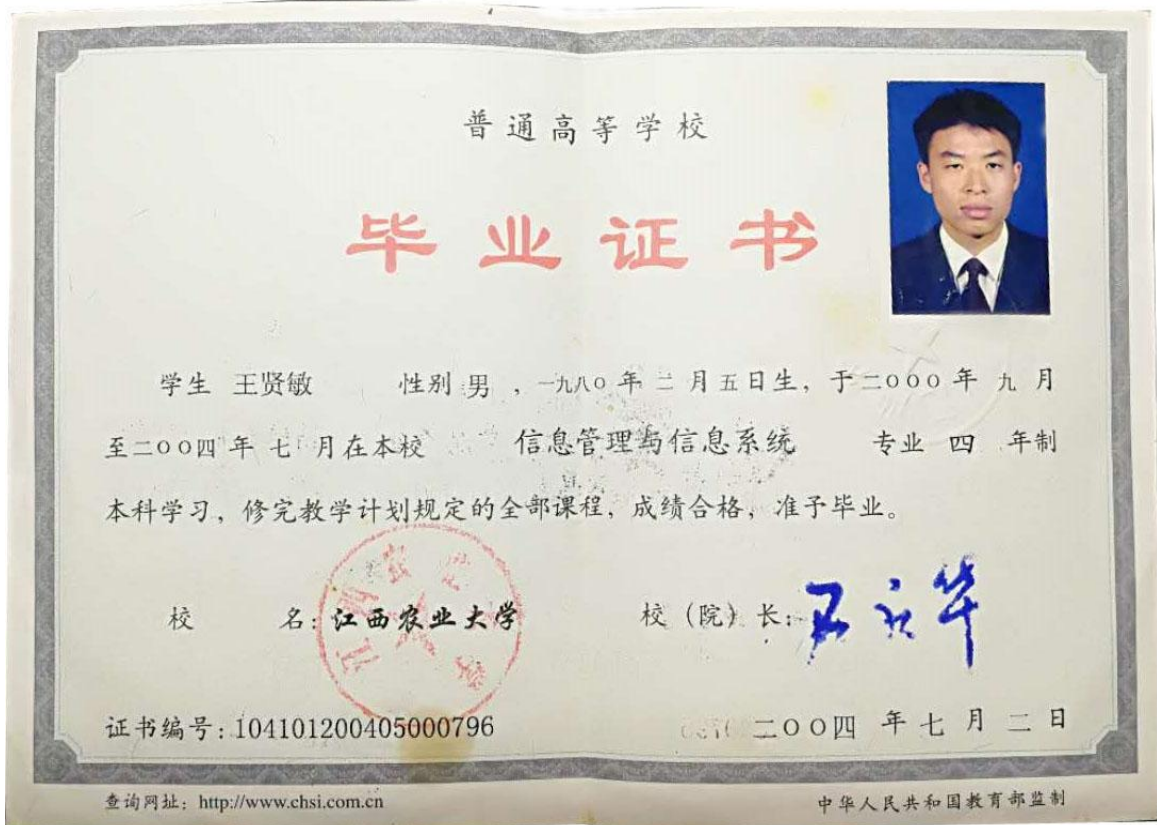 普通高等学校
毕业证书
学生 王贤敏 性别 男 ，一九八〇年 二 月五日生，于二〇〇〇年 九 月
至二〇〇四年 七 月在本校 信息管理与信息系统 专业 四 年制
本科学习，修完教学计划规定的全部课程，成绩合格，准予毕业。
校 名：江西农业大学 校（院）长：
证书编号：104101200405000796 二〇〇四 年 七 月 二 日
查询网址：http://www.chsi.com.cn 中华人民共和国教育部监制